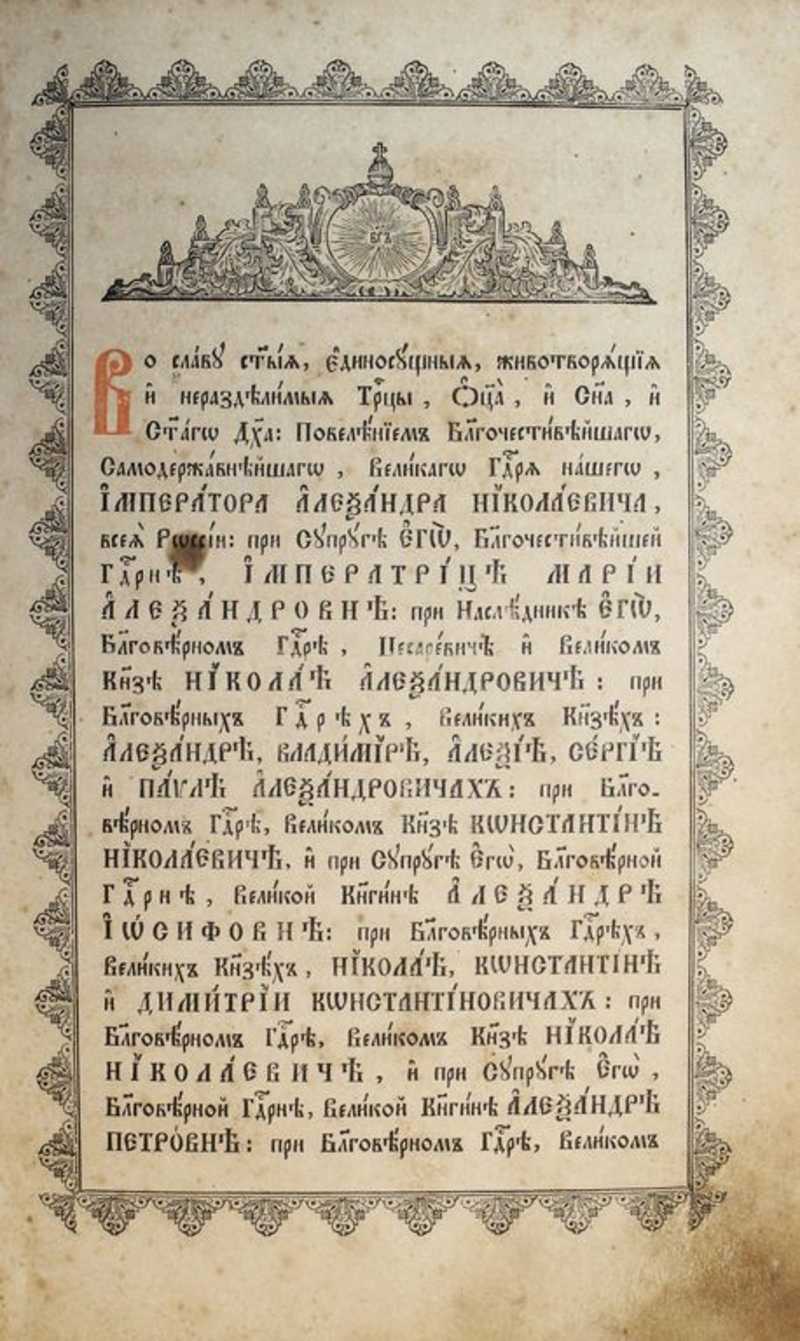 БГЪ
Во славꙋ ст҃ы́ѧ, є҆диносꙋ́щныѧ, животворѧ́щїѧ
и҆ нераздѣли́мыѧ Трⷪ҇цы, Ѻ҆ц҃а̀, и҆ Сн҃а, и҆
Ст҃а́гѡ Дх҃а: Повелѣ́нїемъ Бл҃гочести́вѣйшагѡ,
Самодержа́внѣйшагѡ, Вели́кагѡ Гдⷭ҇рѧ на́шегѡ,
І҆МПЕРА́ТОРА А҆ЛЕѮА́НДРА НЇКОЛА́ЕВИЧА,
всеѧ̀ Рѡссі́и: при Сꙋпрꙋ́гѣ Є҆ГѠ̀, Бл҃гочести́вѣйшей
Гдⷭ҇рнѣ, І҆МПЕРАТРИ́ЦѢ МАРІ́И
А҆ЛЕѮА́НДРОВНѢ: при Наслѣ́дникѣ Є҆ГѠ̀,
Бл҃говѣ́рномъ Гдⷭ҇рѣ, Цесаре́вичѣ и҆ Вели́комъ
Кнѕ҃ѣ НЇКОЛА́Ѣ А҆ЛЕѮА́НДРОВИЧѢ: при
Бл҃говѣ́рныхъ Гдⷭ҇рѣхъ, Вели́кихъ Кнѕ҃ѣхъ:
А҆ЛЕѮА́НДРѢ, ВЛАДИ́МІРѢ, А҆ЛЕѮІ́Ѣ, СЕ́РГІѢ
и҆ ПА́ѴЛѢ А҆ЛЕѮА́НДРОВИЧАХЪ: при Бл҃го-
вѣ́рномъ Гдⷭ҇рѣ, Вели́комъ Кнѕ҃ѣ КѠНСТАНТІ́НѢ
НЇКОЛА́ЕВИЧѢ, и҆ при Сꙋпрꙋ́гѣ Є҆гѡ̀, Бл҃говѣ́рной
Гдⷭ҇рнѣ, Вели́кой Кнг҃и́нѣ А҆ЛЕѮА́НДРѢ
І҆Ѡ́СИФОВНѢ: при Бл҃говѣ́рныхъ Гдⷭ҇рѣхъ,
Вели́кихъ Кнѕ҃ѣхъ, НЇКОЛА́Ѣ, КѠНСТАНТІ́НѢ
и҆ ДИМИ́ТРІИ КѠНСТАНТІ́НОВИЧАХЪ: при
Бл҃говѣ́рномъ Гдⷭ҇рѣ, Вели́комъ Кнѕ҃ѣ НЇКОЛА́Ѣ
НЇКОЛА́ЕВИЧѢ, и҆ при Сꙋпрꙋ́гѣ Є҆гѡ̀,
Бл҃говѣ́рной Гдⷭ҇рнѣ, Вели́кой Кнг҃и́нѣ А҆ЛЕѮА́НДРѢ
ПЕТРО́ВНѢ: при Бл҃говѣ́рномъ Гдⷭ҇рѣ, Вели́комъ